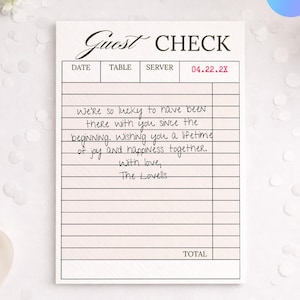 Guest CHECK
DATE TABLE SERVER 04.22.2X
We're so lucky to have been
there with you since the
beginning. Wishing you a lifetime
of joy and happiness together.
With love,
The Lovells
TOTAL